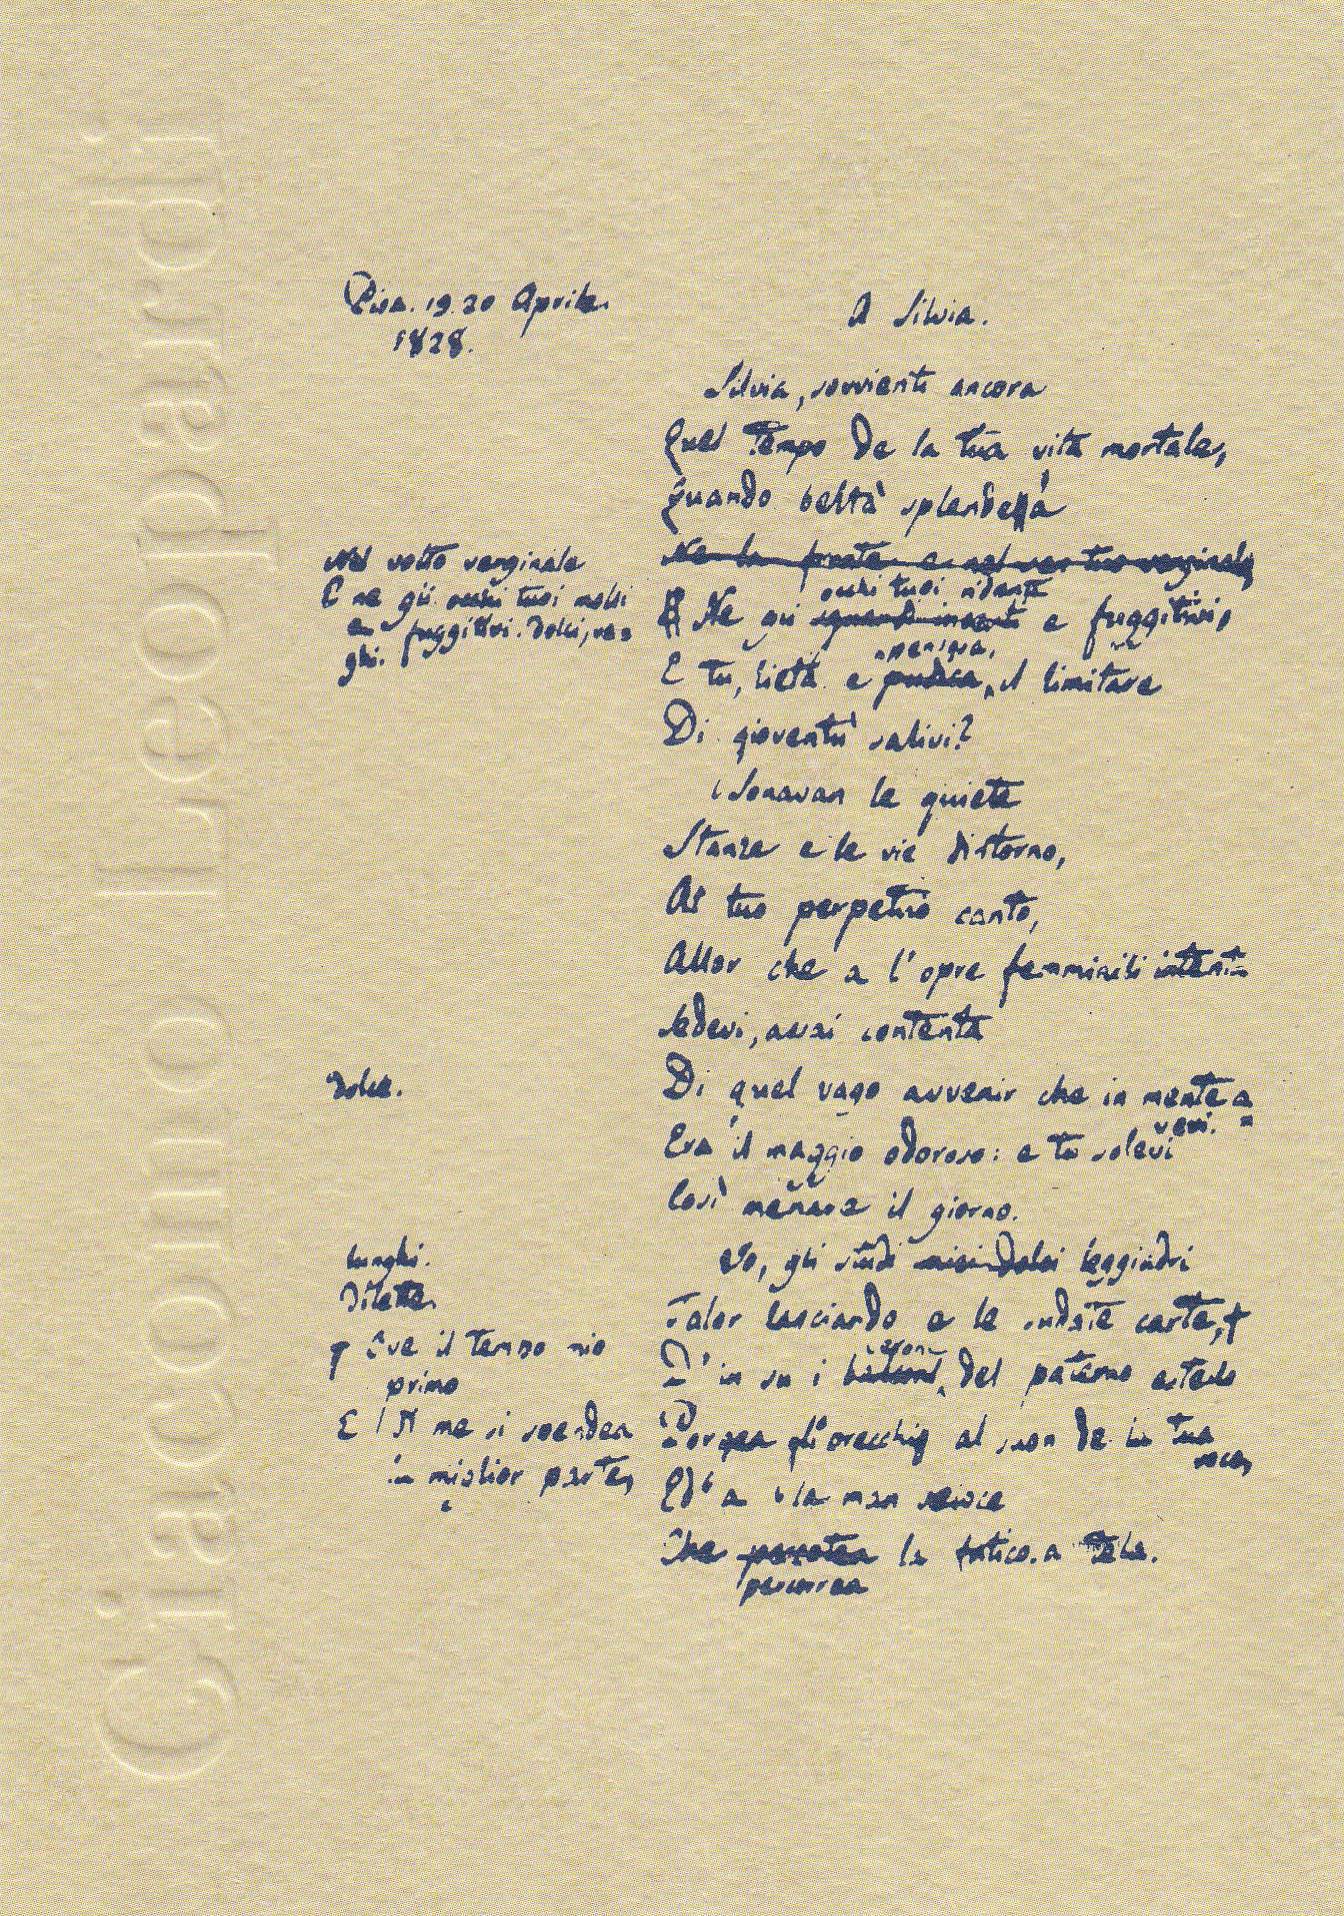 Giacomo Leopardi
Pisa. 19. 20 Aprile.
1828.
A Silvia.
Silvia, sovvienti ancora
Quel tempo de la tua vita mortale,
Quando beltà splendea
Ne la fronte e nel sen tuo verginale,
Nel volto verginale
E ne gli occhi tuoi molli
e fuggitivi. dolci, va=
ghi.
occhi tuoi ridenti
E Ne gli sguardi incerti e fuggitivi,
pensosa,
E tu, lieta e pudica, il limitare
Di gioventù salivi?
Sonavan le quiete
Stanze e le vie dintorno,
Al tuo perpetuo canto,
Allor che a l'opre femminili intenta
Sedevi, assai contenta
dolce.
Di quel vago avvenir che in mente a=
vevi.
Era il maggio odoroso: e tu solevi
Così menare il giorno.
lunghi.
dilette.
Io, gli studi miei dolci leggiadri
Talor lasciando e le sudate carte,
Ove il tempo mio
primo
E di me si spendea
la miglior parte,
veroni
D'in su i balconi del paterno ostello
Porgea gli orecchi al suon de la tua
voce,
Ed a la man veloce
Che percotea la faticosa tela.
percorrea